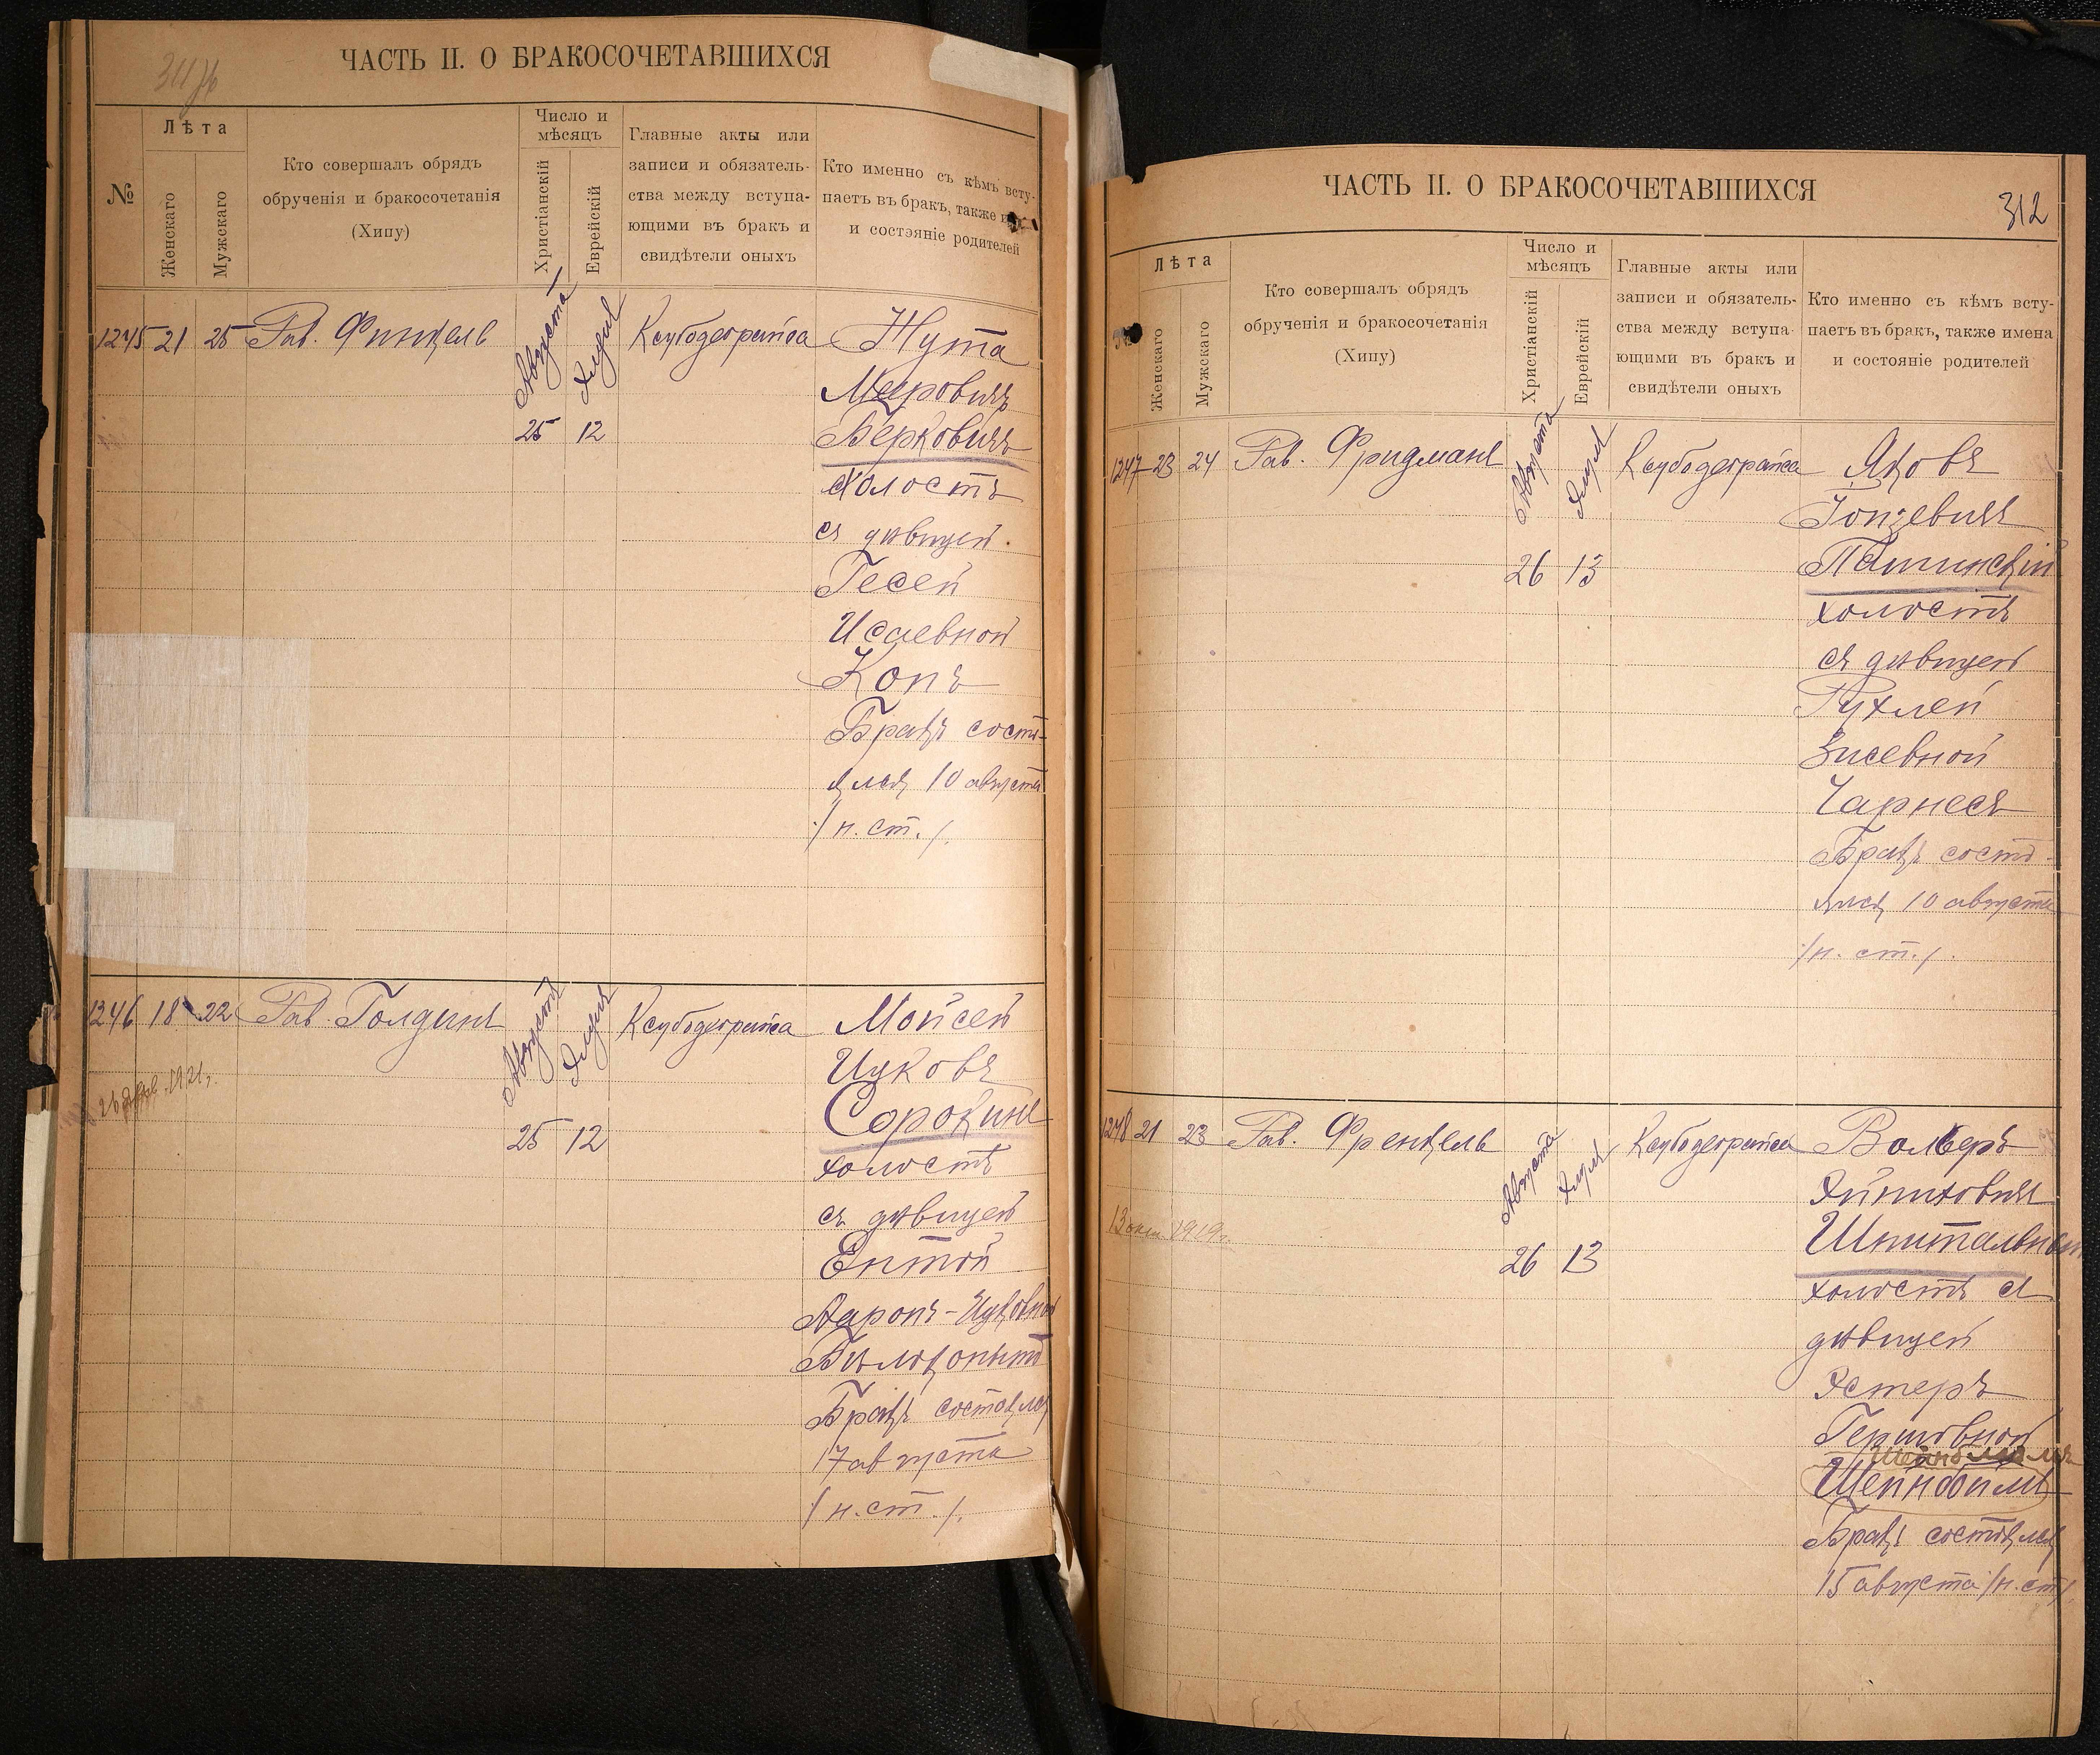 ЧАСТЬ II. О БРАКОСОЧЕТАВШИХСЯ
№
Лѣта
Женскаго
Мужскаго
Кто совершалъ обрядъ
обрученія и бракосочетанія
(Хипу)
Число и
мѣсяцъ
Христіанскій
Еврейскій
Главные акты или
записи и обязатель-
ства между вступа-
ющими въ бракъ и
свидѣтели оныхъ
Кто именно съ кѣмъ всту-
паетъ въ бракъ, также
и состояніе родителей
1245 21 25 Рав. Финкель Августа Элула Ксубодеграйса Жута
Мееровичъ
25 12 Берковичъ
холостъ
съ дѣвицей
Гесей
Исаевной
Копъ
Бракъ состо-
ялся 10 августа
/н. ст./.
1246 18 22 Рав. Голдинъ Августа Элула Ксубодеграйса Мойсей
Ицковъ
26 1921 г.
25 12 Сорокинъ
холостъ
съ дѣвицей
Ентой
Аронъ-Ицковной
Бѣлокопытъ
Бракъ состоялся
17 августа
/н. ст./.
ЧАСТЬ II. О БРАКОСОЧЕТАВШИХСЯ
312
Лѣта
Женскаго
Мужскаго
Кто совершалъ обрядъ
обрученія и бракосочетанія
(Хипу)
Число и
мѣсяцъ
Христіанскій
Еврейскій
Главные акты или
записи и обязатель-
ства между вступа-
ющими въ бракъ и
свидѣтели оныхъ
Кто именно съ кѣмъ всту-
паетъ въ бракъ, также имена
и состояніе родителей
1247 23 24 Рав. Фридманъ Августа Элула Ксубодеграйса Яковъ
Гопзевичъ
26 13 Пашинскій
холостъ
съ дѣвицей
Рухлей
Зисевной
Чарнесъ
Бракъ состо-
ялся 10 августа
/н. ст./.
1248 21 23 Рав. Френкель Августа Элула Ксубодеграйса Вольфъ
13 1919 г.
26 13 Шпитальный
холостъ съ
дѣвицей
Эстеръ
Гершовной
Шейнбоймъ
Бракъ состоялся
15 августа /н. ст/.